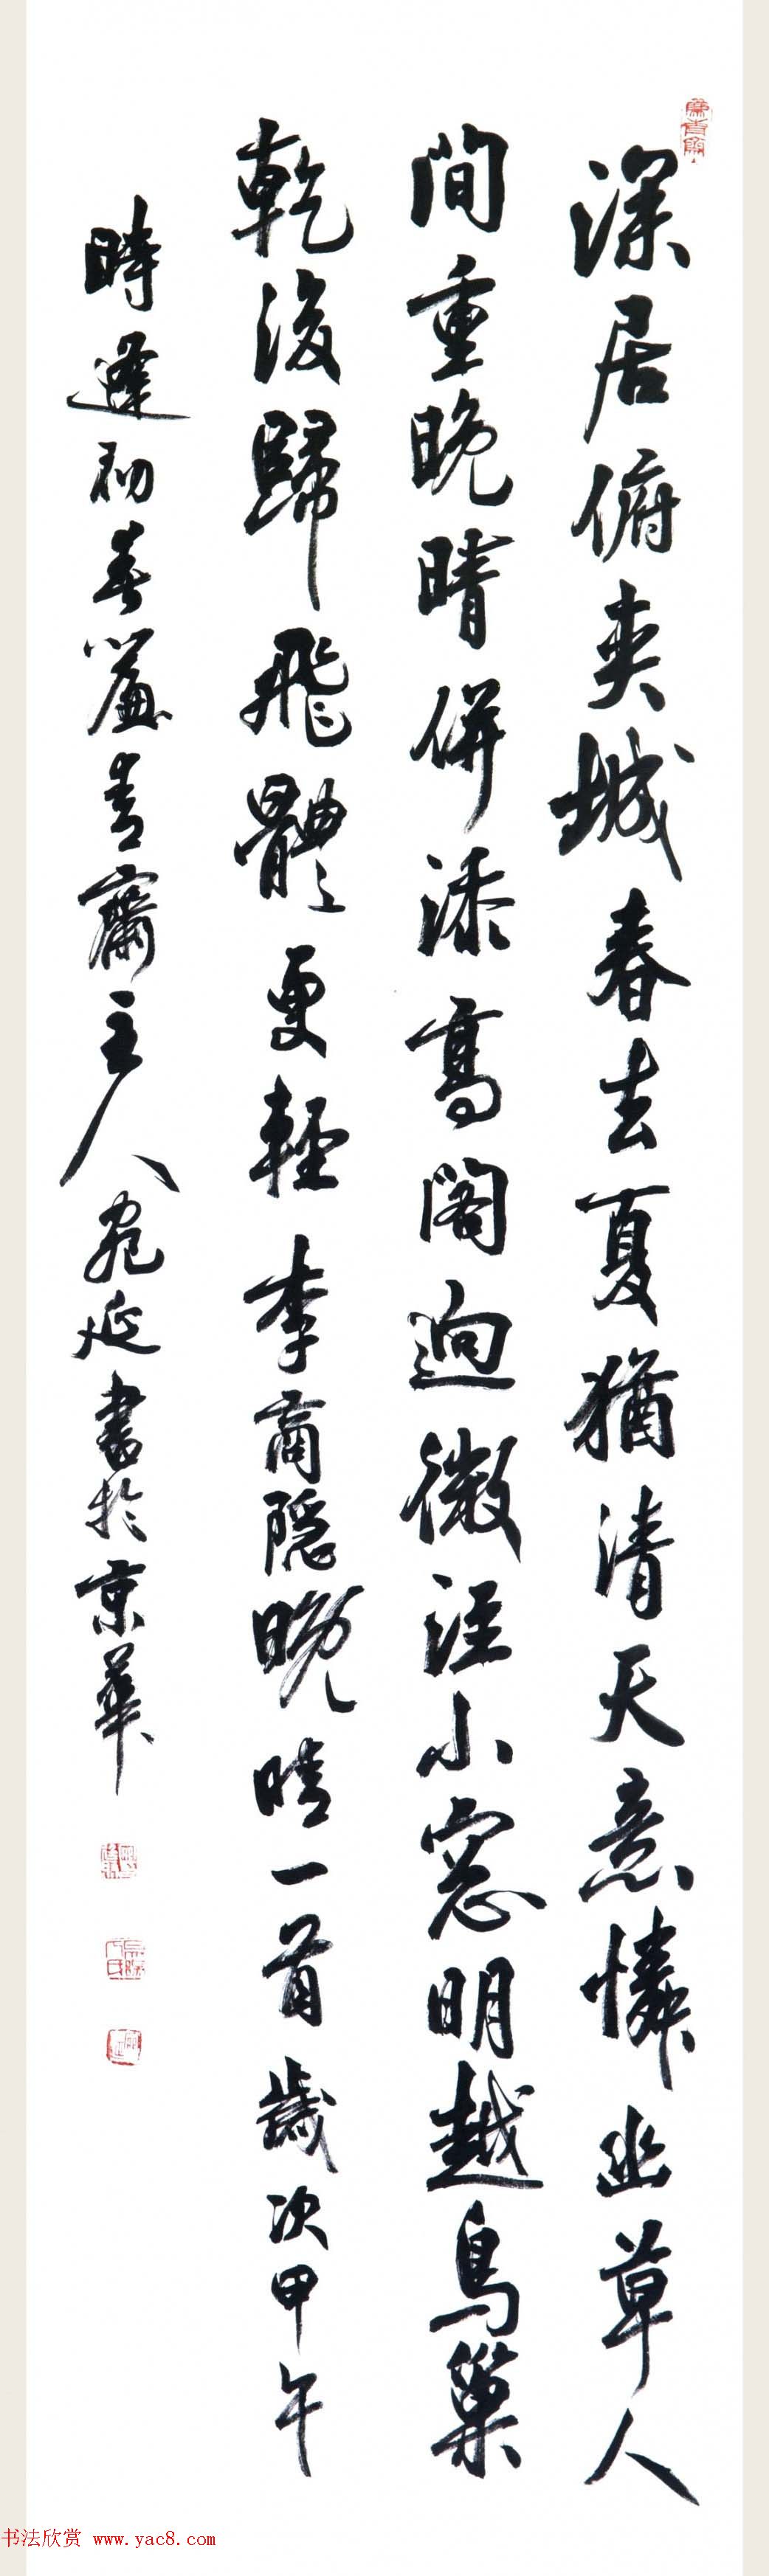 深居俯夾城春去夏猶清天意憐幽草人
間重晚晴併添高閣迥微注小窓明越鳥巢
乾後歸飛體更輕李商隱晚晴一首歲次甲午
時逢初春簾青齋主人宛延書於京華
书法欣赏 www.yac8.com